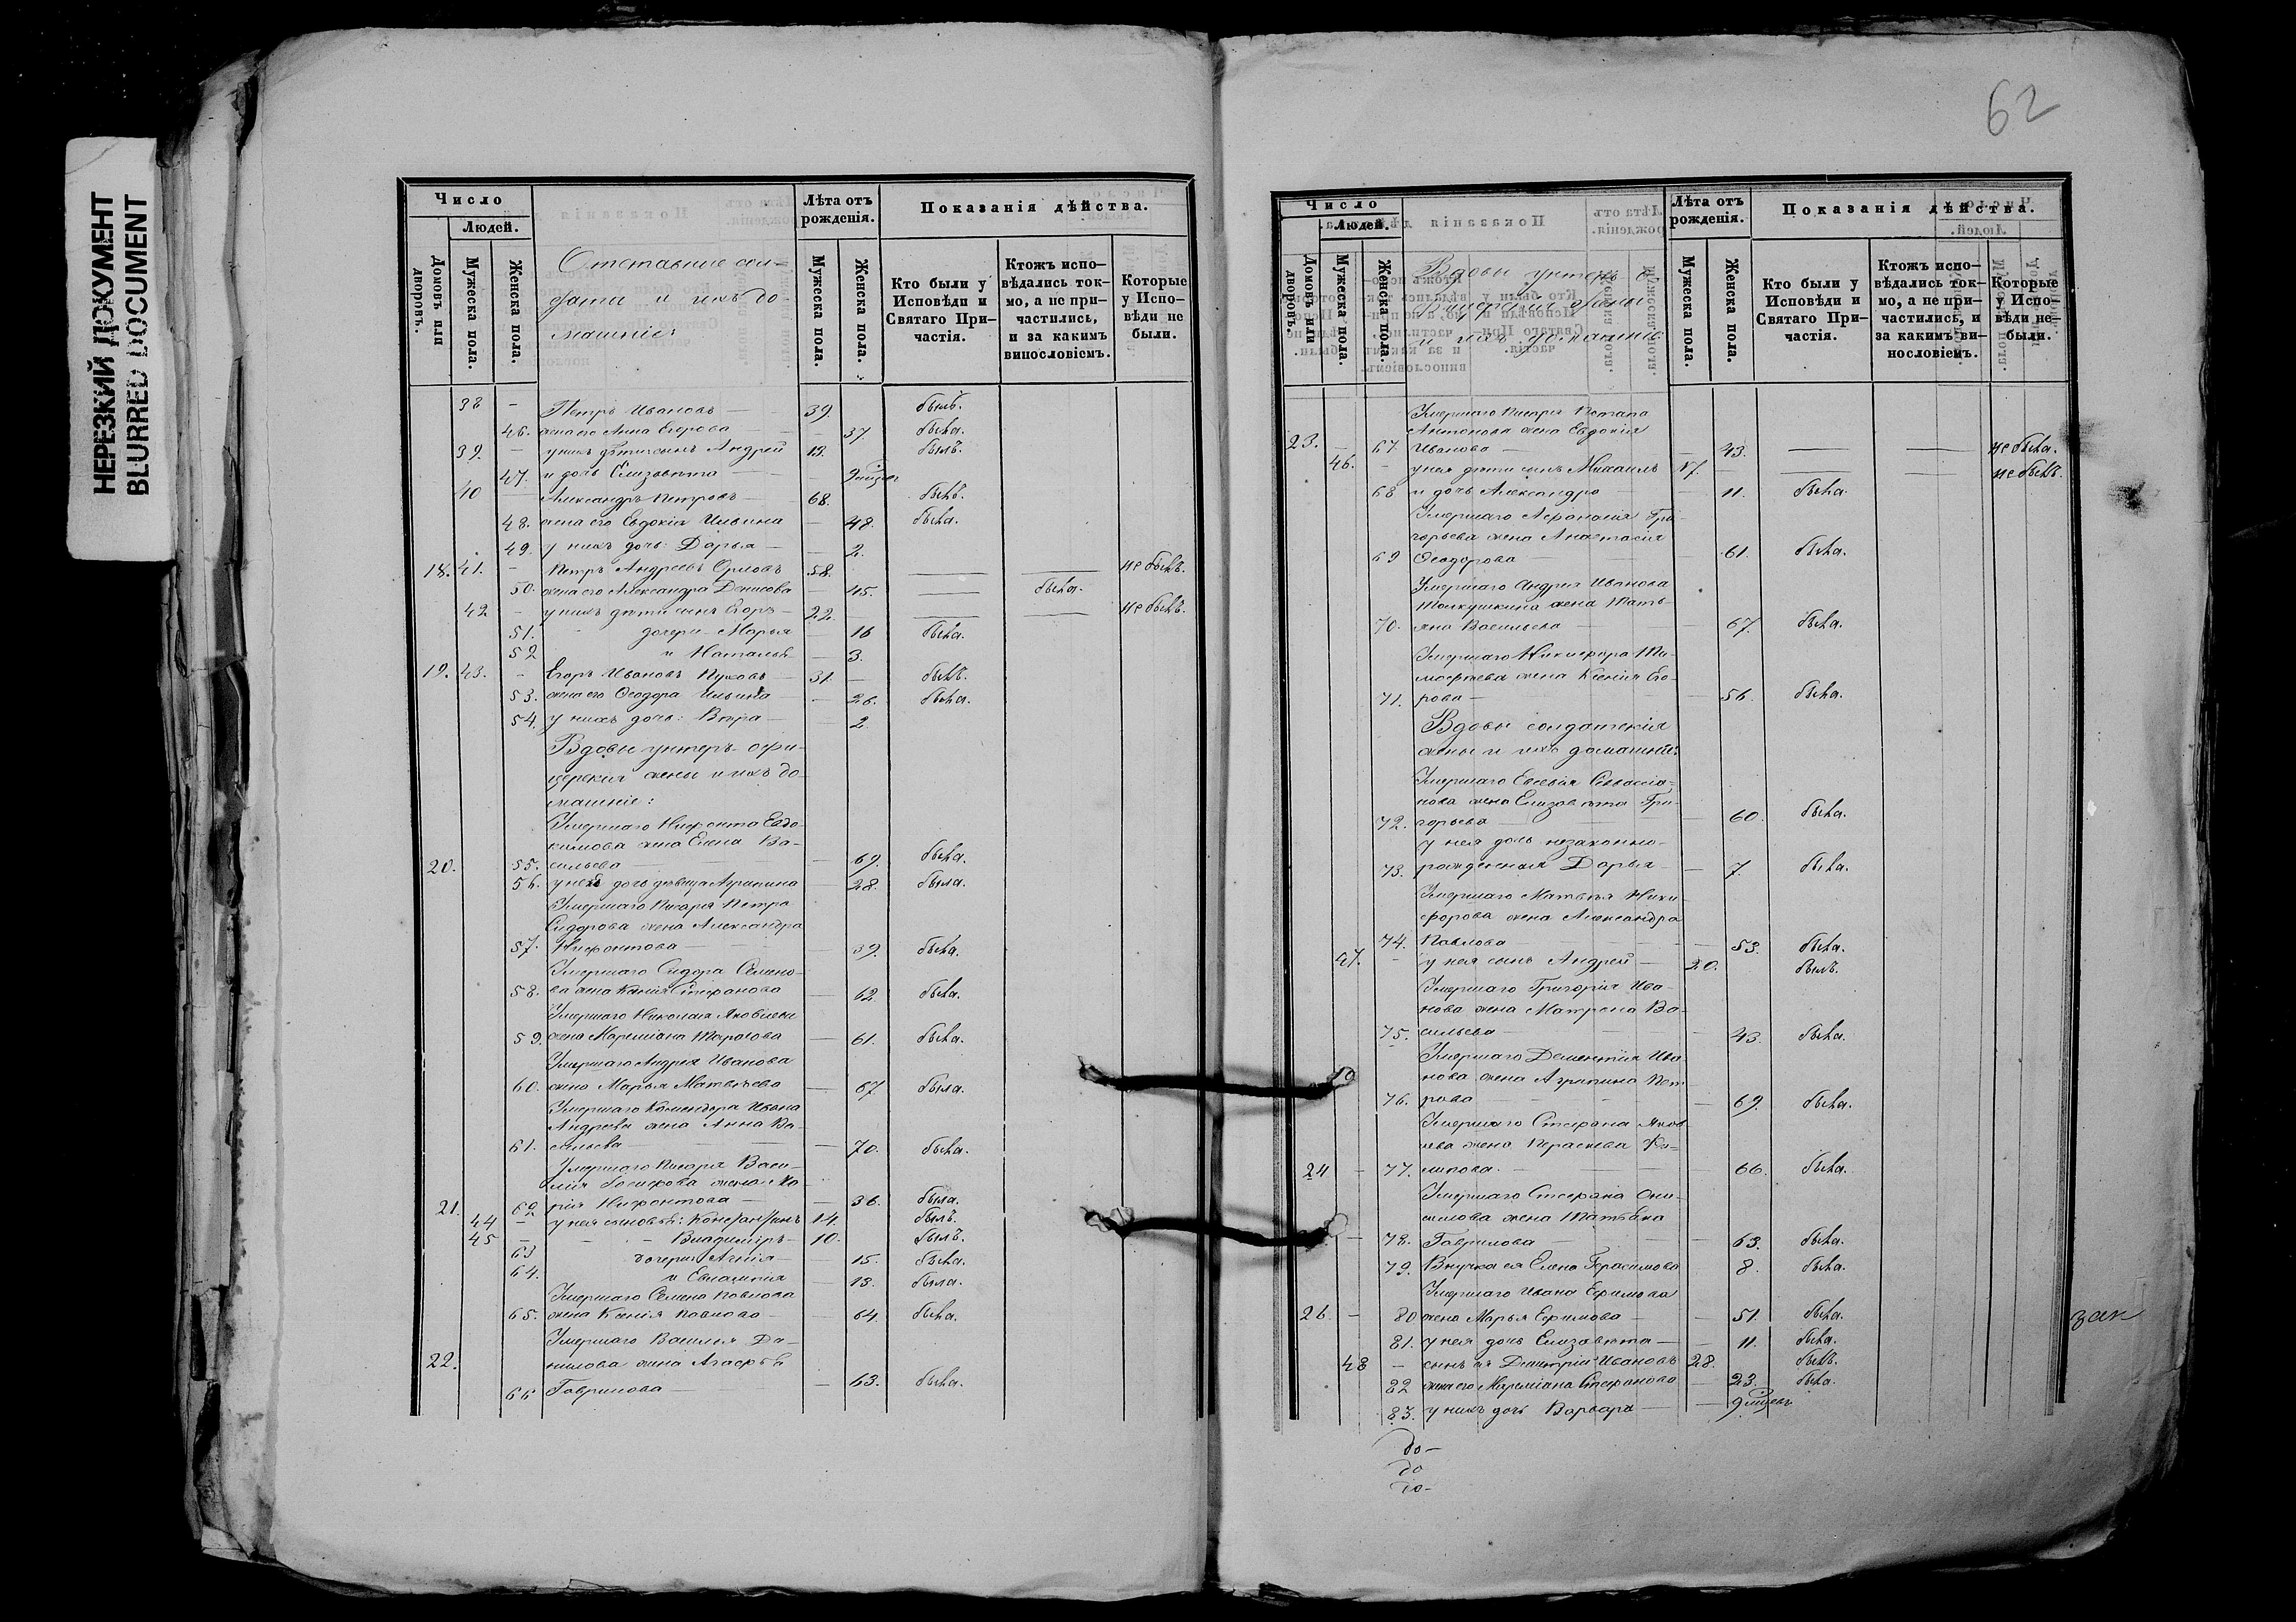 НЕРЕЗКИЙ ДОКУМЕНТ
BLURRED DOCUMENT
Число
Людей.
Домовъ или дворовъ.
Мужеска пола.
Женска пола.
Отставные сол-
даты и ихъ до-
машніе
Лѣта отъ рожденія.
Мужеска пола
Женска пола.
Показанія дѣйства.
Кто были у Исповѣди и Святаго При-частія.
Ктожъ испо-вѣдались ток-мо, а не при-частились, и за какимъ винословіемъ.
Которые у Испо-вѣди не были.
38 - Петръ Ивановъ - 39. былъ.
46. жена его Анна Егорова - 37 была.
39. - у нихъ дѣти: сынъ Андрей 12. былъ.
47. и дочь Елизавета
40 Александръ Петровъ - 68. былъ.
48. жена его Евдокія Ильина - 48. была.
49. у нихъ дочь: Дарья - 2.
18. 41. - Петръ Андреевъ Орловъ 58. не былъ.
50. жена его Александра Денисова - 45. была.
42 - у нихъ дѣти сынъ Егоръ - 22 не былъ.
51. дочери Марья - 16 была.
52 и Наталья - 3.
19. 43. - Егоръ Ивановъ Пуховъ - 31. - былъ.
53. жена его Ѳеодора Ильина - 26. была.
54. у нихъ дочь: Вѣра - 2
Вдовы унтеръ-офи-
церскія жены и ихъ до-
машніе:
Умершаго Нифонта Евдо-
кимова жена Елена Ва-
20. 55. сильева - 69. была.
56. у нея дочь девица Агрипина - 28. была.
Умершаго Писаря Петра
Сидорова жена Александра
57. Нифонтова - 39. была.
Умершаго Сидора Семено-
58. ва жена Ксенія Стефанова - 62 была.
Умершаго Николая Яковлева
59. жена Мареміана Тарасова - 61. была.
Умершаго Андрея Иванова
60. жена Марья Матвѣева - 67 была.
Умершаго Ивана
Андреева жена Анна Ва-
61. сильева - 70. была.
Умершаго Писаря Васи-
лія Іосифова жена Ма-
21. 62 рія Нифонтова - 36. была.
44 - у нея сыновья: Константинъ 14. былъ.
45 - Владиміръ - 10. былъ.
63 дочери Агнія - 15. была.
64. и Евлампія - 13. была.
Умершаго Семена Павлова
65. жена Ксенія Павлова - 64. была.
Умершаго Василія Да-
22. нилова жена Агафья
66 Гаврилова - 63. была.
62
Число
Людей.
Домовъ или дворовъ.
Мужеска пола
Женска пола.
Вдовы унтеръ-о-
фицерскія жены
и ихъ домашніе
Лѣта отъ рожденія.
Мужеска пола
Женска пола.
Показанія дѣйства.
Кто были у Исповѣди и Святаго При-частія.
Ктожъ испо-вѣдались ток-мо, а не при-частились, и за какимъ ви-нословіемъ.
Которые у Испо-вѣди не были.
Умершаго Писаря Потапа
Антонова жена Евдокія
23. - 67. Иванова - 43. не была.
46. - у нея дѣти сынъ Михаилъ 17. не былъ.
68 и дочь Александра - 11. была.
Умершаго Афанасія Гри-
горьева жена Анастасія
69 Ѳеодорова - 61. была.
Умершаго Андрея Иванова
жена Тать-
70. яна Васильева - 67. была.
Умершаго Никифора Ти-
мофѣева жена Ксенія Его-
71. рова - 56. была.
Вдовы солдатскія
жены и ихъ домашніе:
Умершаго Евсевія Севастіа-
нова жена Елизавета Гри-
72. горьева - 60. была.
у нея дочь незаконно-
73. рожденная Дарья - 7. была.
Умершаго Матвѣя Ники-
форова жена Александра
74. Павлова - 53. была.
47. - у нея сынъ Андрей - 20. былъ.
Умершаго Григорія Ива-
нова жена Матрена Ва-
75. сильева - 43. была.
Умершаго Дементія Ива-
нова жена Агрипина Пет-
76. рова - 69. была.
Умершаго Стефана Яков-
лева жена Параскева Фи-
24 - 77. липова. - 66. была.
Умершаго Стефана Они-
симова жена Татьяна
- 78. Гаврилова - 63. была.
79. Внучка ея Елена Герасимова 8. была.
Умершаго Ивана Ефимова
26. - 80 жена Марья Ефимова - 51. была.
81. у нея дочь Елизавета - 11. была.
48 - сынъ ея Димитрій Ивановъ 28. былъ.
82 жена его Мареміана Стефанова - 23. была.
83. у нихъ дочь Варвара
до-
до
до-